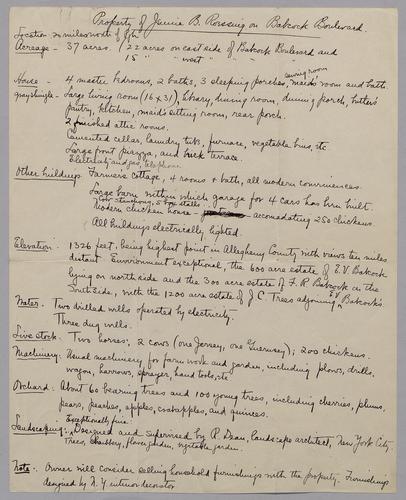 Property of Jennie B. Roessing on Babcock Boulevard.
Location - miles north of
Acreage - 37 acres. 22 acres on east side of Babcock Boulevard and
15 " " west "
sewing room
House - 4 master bedrooms, 2 baths, 3 sleeping porches, maid's room and bath.
gray shingle - Large living room (16 x 31), library, dining room, dining porch, butler's
pantry, kitchen, maid's sitting room, rear porch.
2 finished attic rooms.
Cemented cellar, laundry tubs, furnace, vegetable bins, etc.
Large front piazza, and brick terrace.
Electricity and gas, telephone
Other buildings. Farmer's cottage, 4 rooms & bath, all modern conveniences.
Large barn within which garage for 4 cars has been built.
stalls
Modern chicken house - accomodating 250 chickens.
All buildings electrically lighted.
Elevation. 1326 feet, being highest point in Allegheny County with views ten miles
distant. Environment exceptional, the 600 acre estate of E.V. Babcock
lying on north side and the 300 acre estate of F.R. Babcock on the
south side, with the 1200 acre estate of J.C. Trees adjoining E.V. Babcock's
Water. Two drilled wells operated by electricity.
Three dug wells.
Live stock. Two horses; 2 cows (one Jersey, one Guernsey); 200 chickens.
Machinery. Usual machinery for farm work and garden, including plows, drills,
wagon, harrows, sprayer, hand tools, etc
Orchard. About 60 bearing trees and 100 young trees, including cherries, plums,
pears, peaches, apples, crabapples, and quinces.
Exceptionally fine.
Landscaping. Designed and supervised by R. Dean, landscape architect, New York City
Trees, shrubbery, flower garden, vegetable garden.
Note. Owner will consider selling household furnishings with the property. Furnishings
designed by N.Y. interior decorator